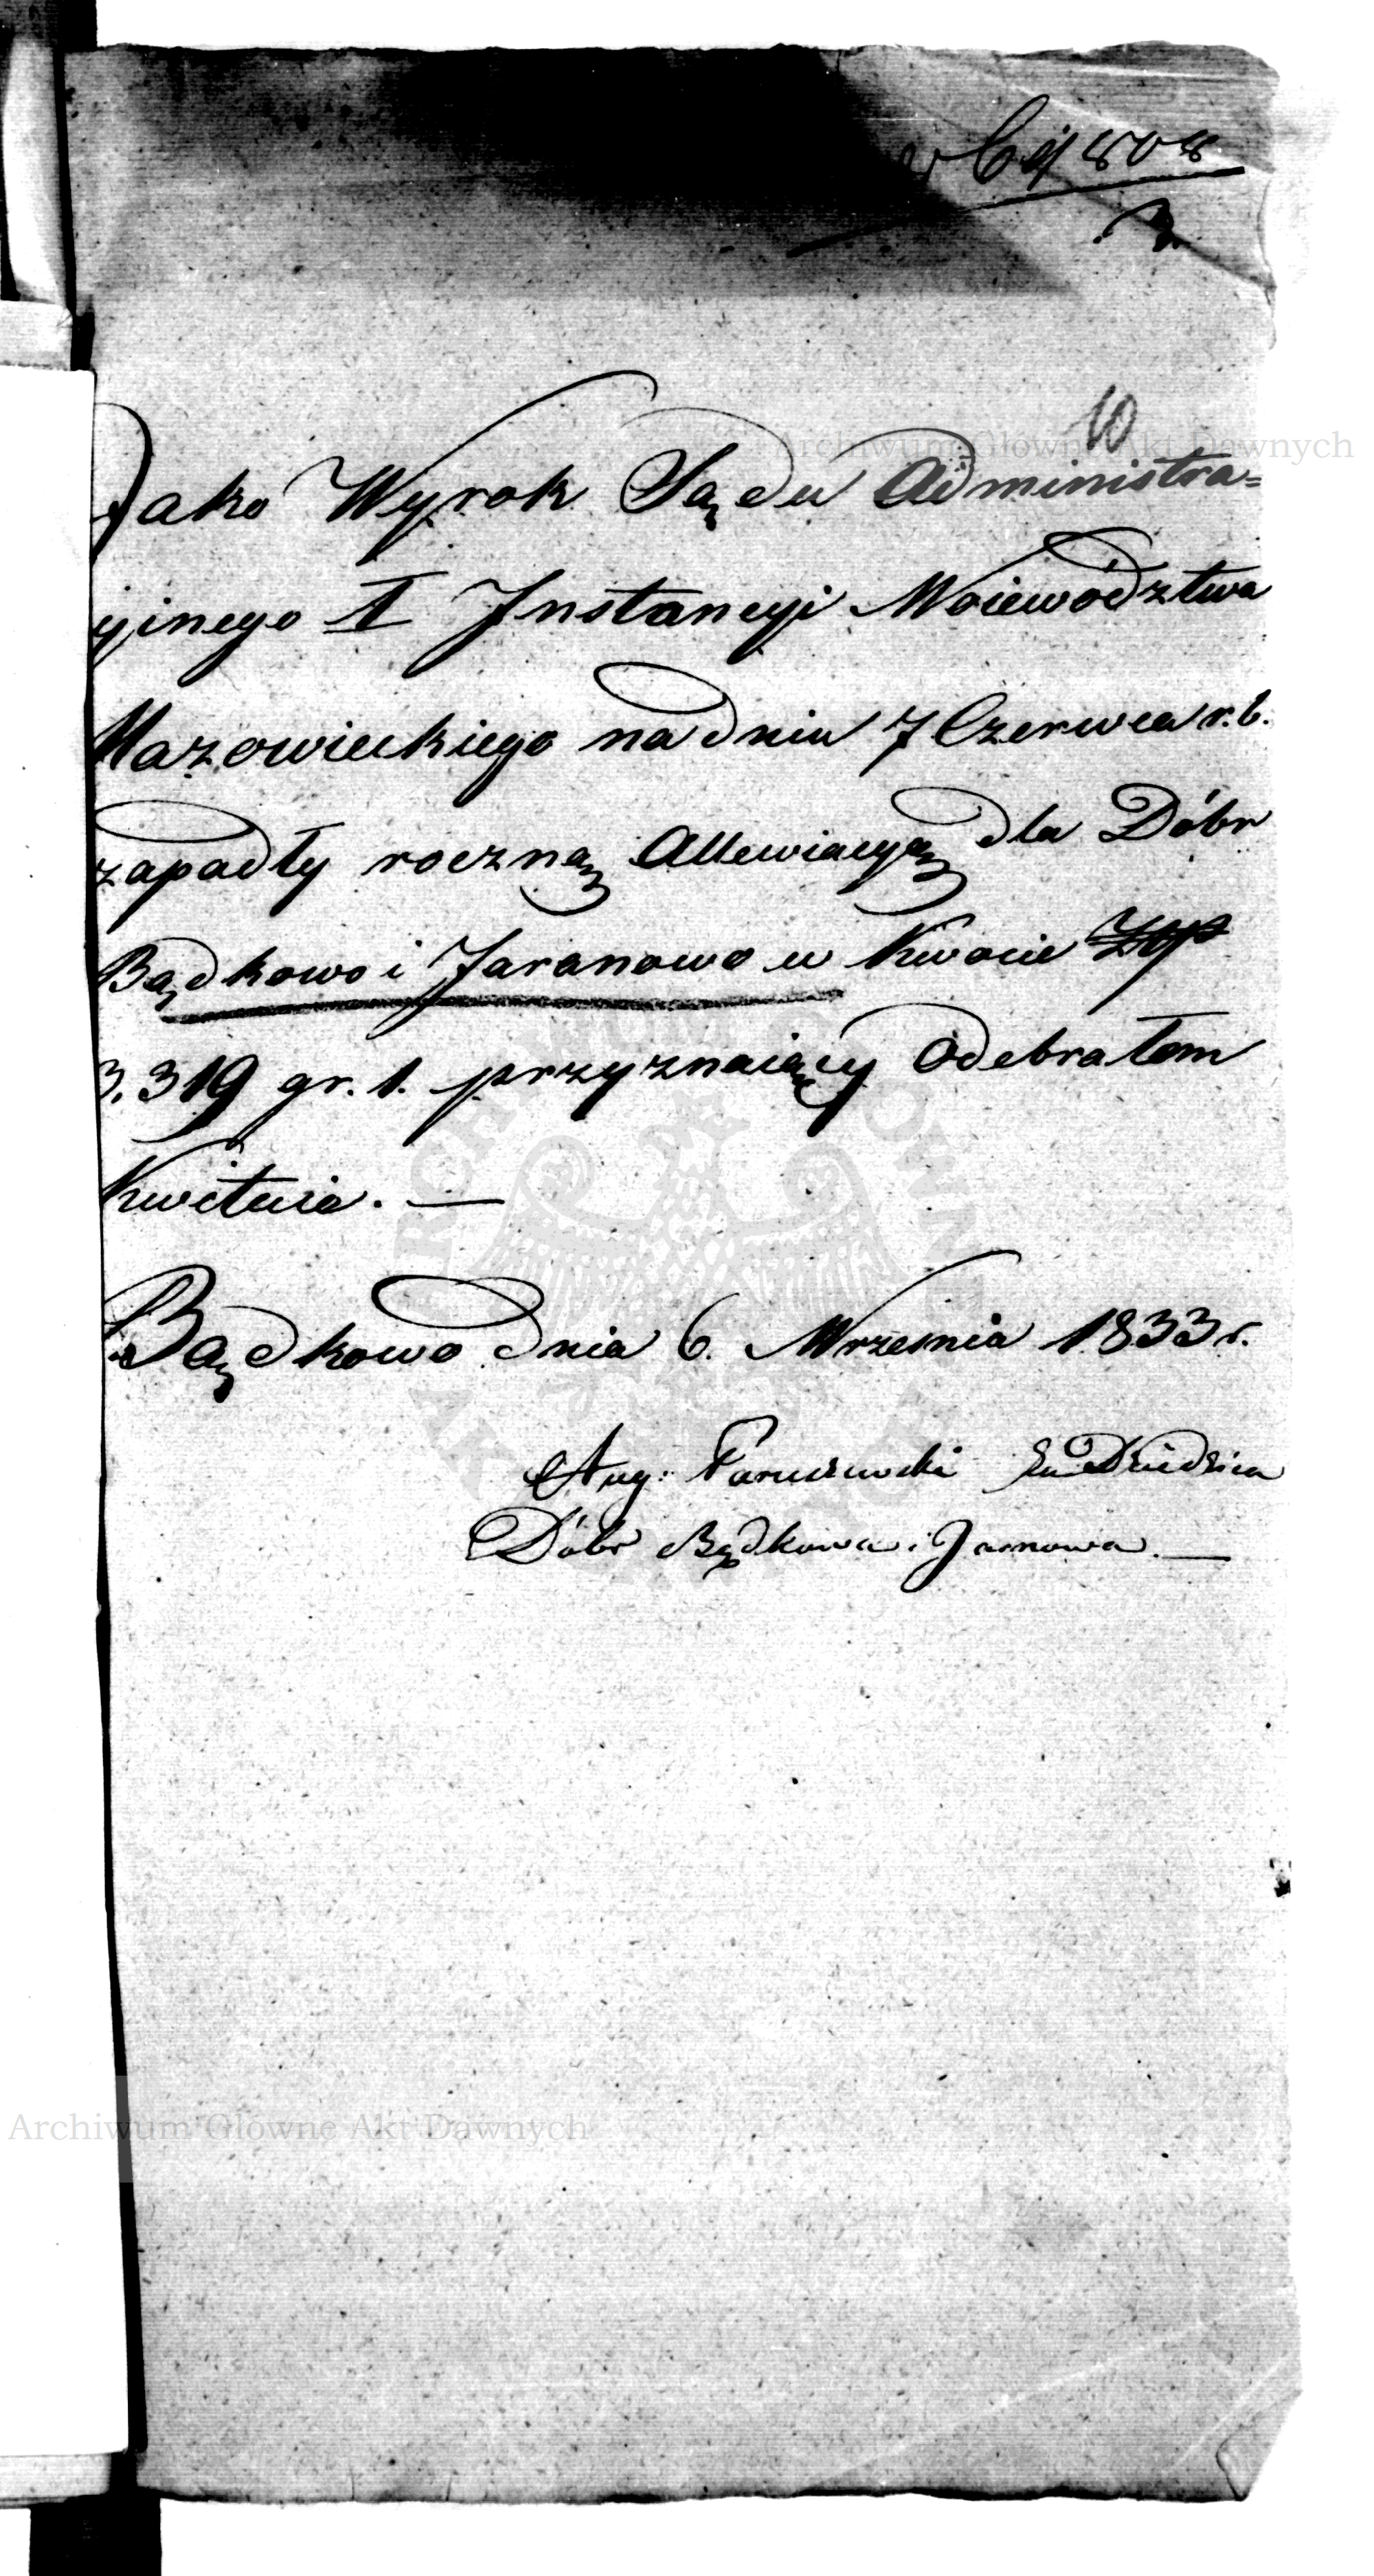 10
Jako Wyrok Sądu Administra=
cyjnego I Instancyi Woiewództwa
Mazowieckiego na dniu 7 Czerwca r. b.
zapadły roczną Allewiacyą dla Dóbr
Bądkowo i Jaranowo w kwocie Złp
3,319 gr. 1. przyznaiący Odebrałem
kwituię. —
Bądkowo dnia 6. Września 1833 r.
Aug: Dziedzica
Dóbr Bądkowa i Jarnowa. —
Archiwum Główne Akt Dawnych
Archiwum Główne Akt Dawnych
ARCHIWUM GŁÓWNE AKT DAWNYCH